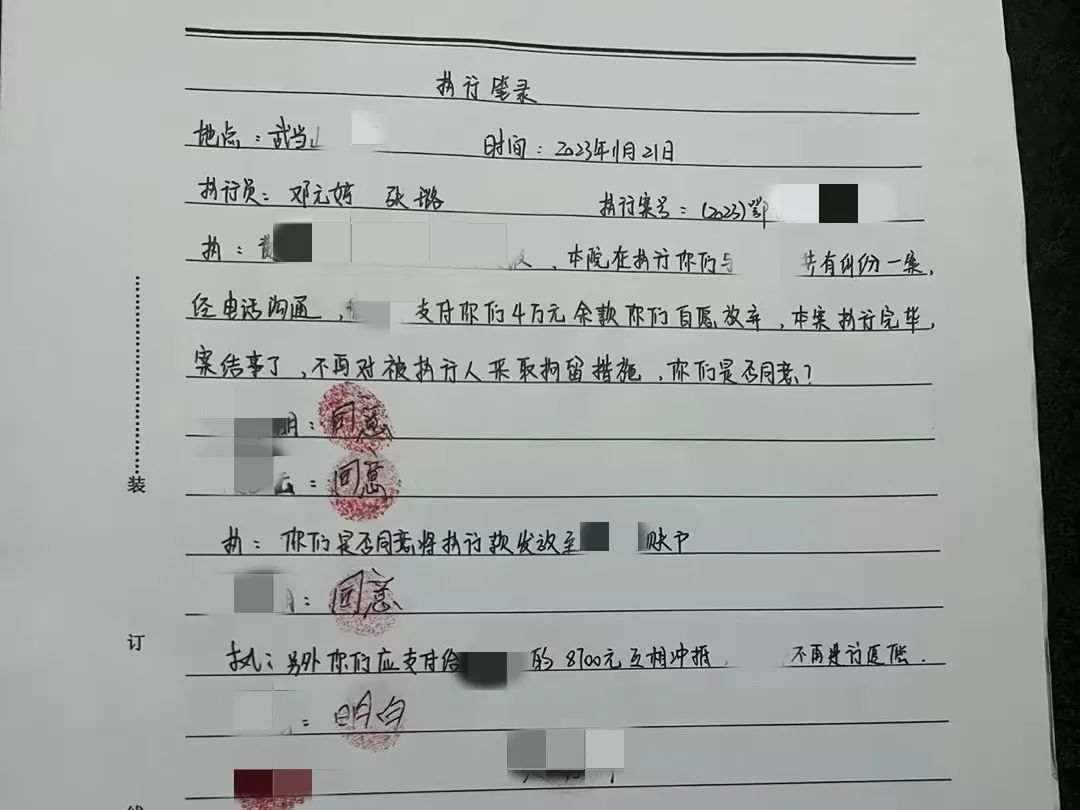 执行笔录
地点：武当 时间：2023年11月21日
执行员：邓元婷 张璐 执行案号：(2023)鄂
执： ，本院在执行你们与 共有纠纷一案，
经电话沟通， 支付你们4万元余款你们自愿放弃，本案执行完毕，
案结事了，不再对被执行人采取拘留措施，你们是否同意？
明：同意
云：同意
执：你们是否同意将执行款发放至 账户
：同意
执：另外你们应支付给 的8700元互相冲抵 不再进行返偿.
：明白
装
订
线